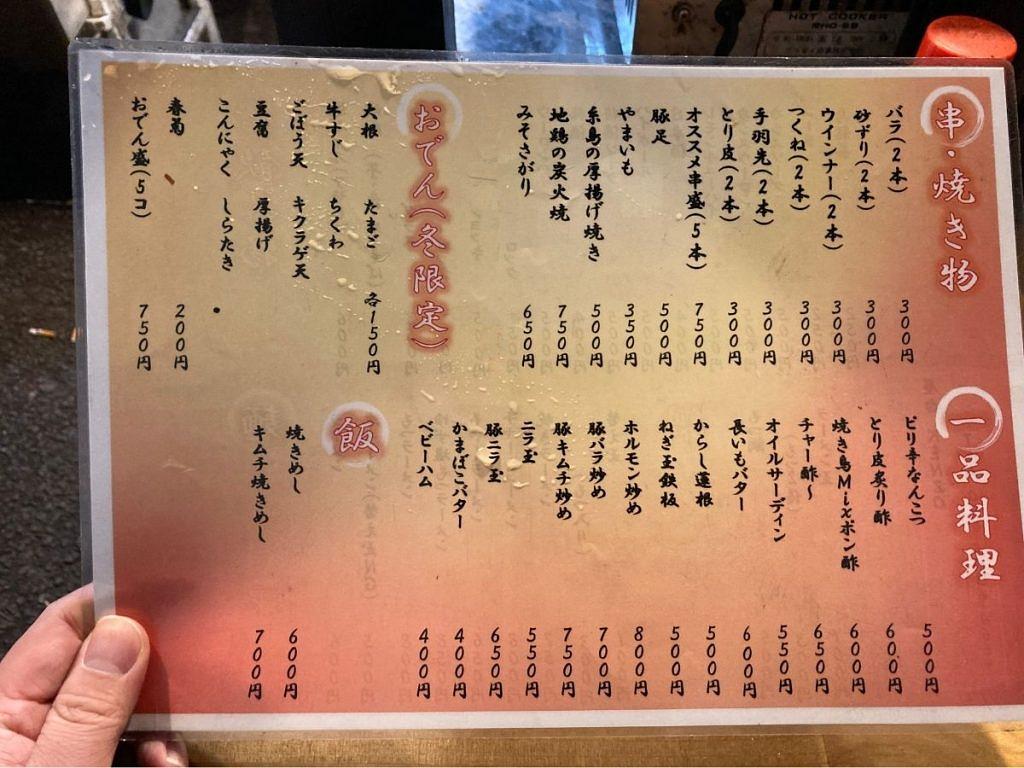 串・焼き物
バラ(2本) 300円
砂ずり(2本) 300円
ウインナー(2本) 300円
つくね(2本) 300円
手羽先(2本) 300円
とり皮(2本) 300円
オススメ串盛(5本) 750円
豚足 500円
やまいも 350円
糸島の厚揚げ焼き 500円
地鶏の炭火焼 750円
みそさがり 650円
おでん(冬限定)
大根 たまご 各150円
牛すじ ちくわ
ごぼう天 キクラゲ天
豆腐 厚揚げ
こんにゃく しらたき
春菊 200円
おでん盛(5コ) 750円
一品料理
ピリ辛なんこつ 500円
とり皮炙り酢 600円
焼き鳥Mixポン酢 600円
チャー酢~ 650円
オイルサーディン 550円
長いもバター 600円
からし蓮根 500円
ねぎ玉鉄板 500円
ホルモン炒め 800円
豚バラ炒め 700円
豚キムチ炒め 750円
ニラ玉 550円
豚ニラ玉 650円
かまぼこバター 400円
ベビーハム 400円
飯
焼きめし 600円
キムチ焼きめし 700円
HOT COOKER